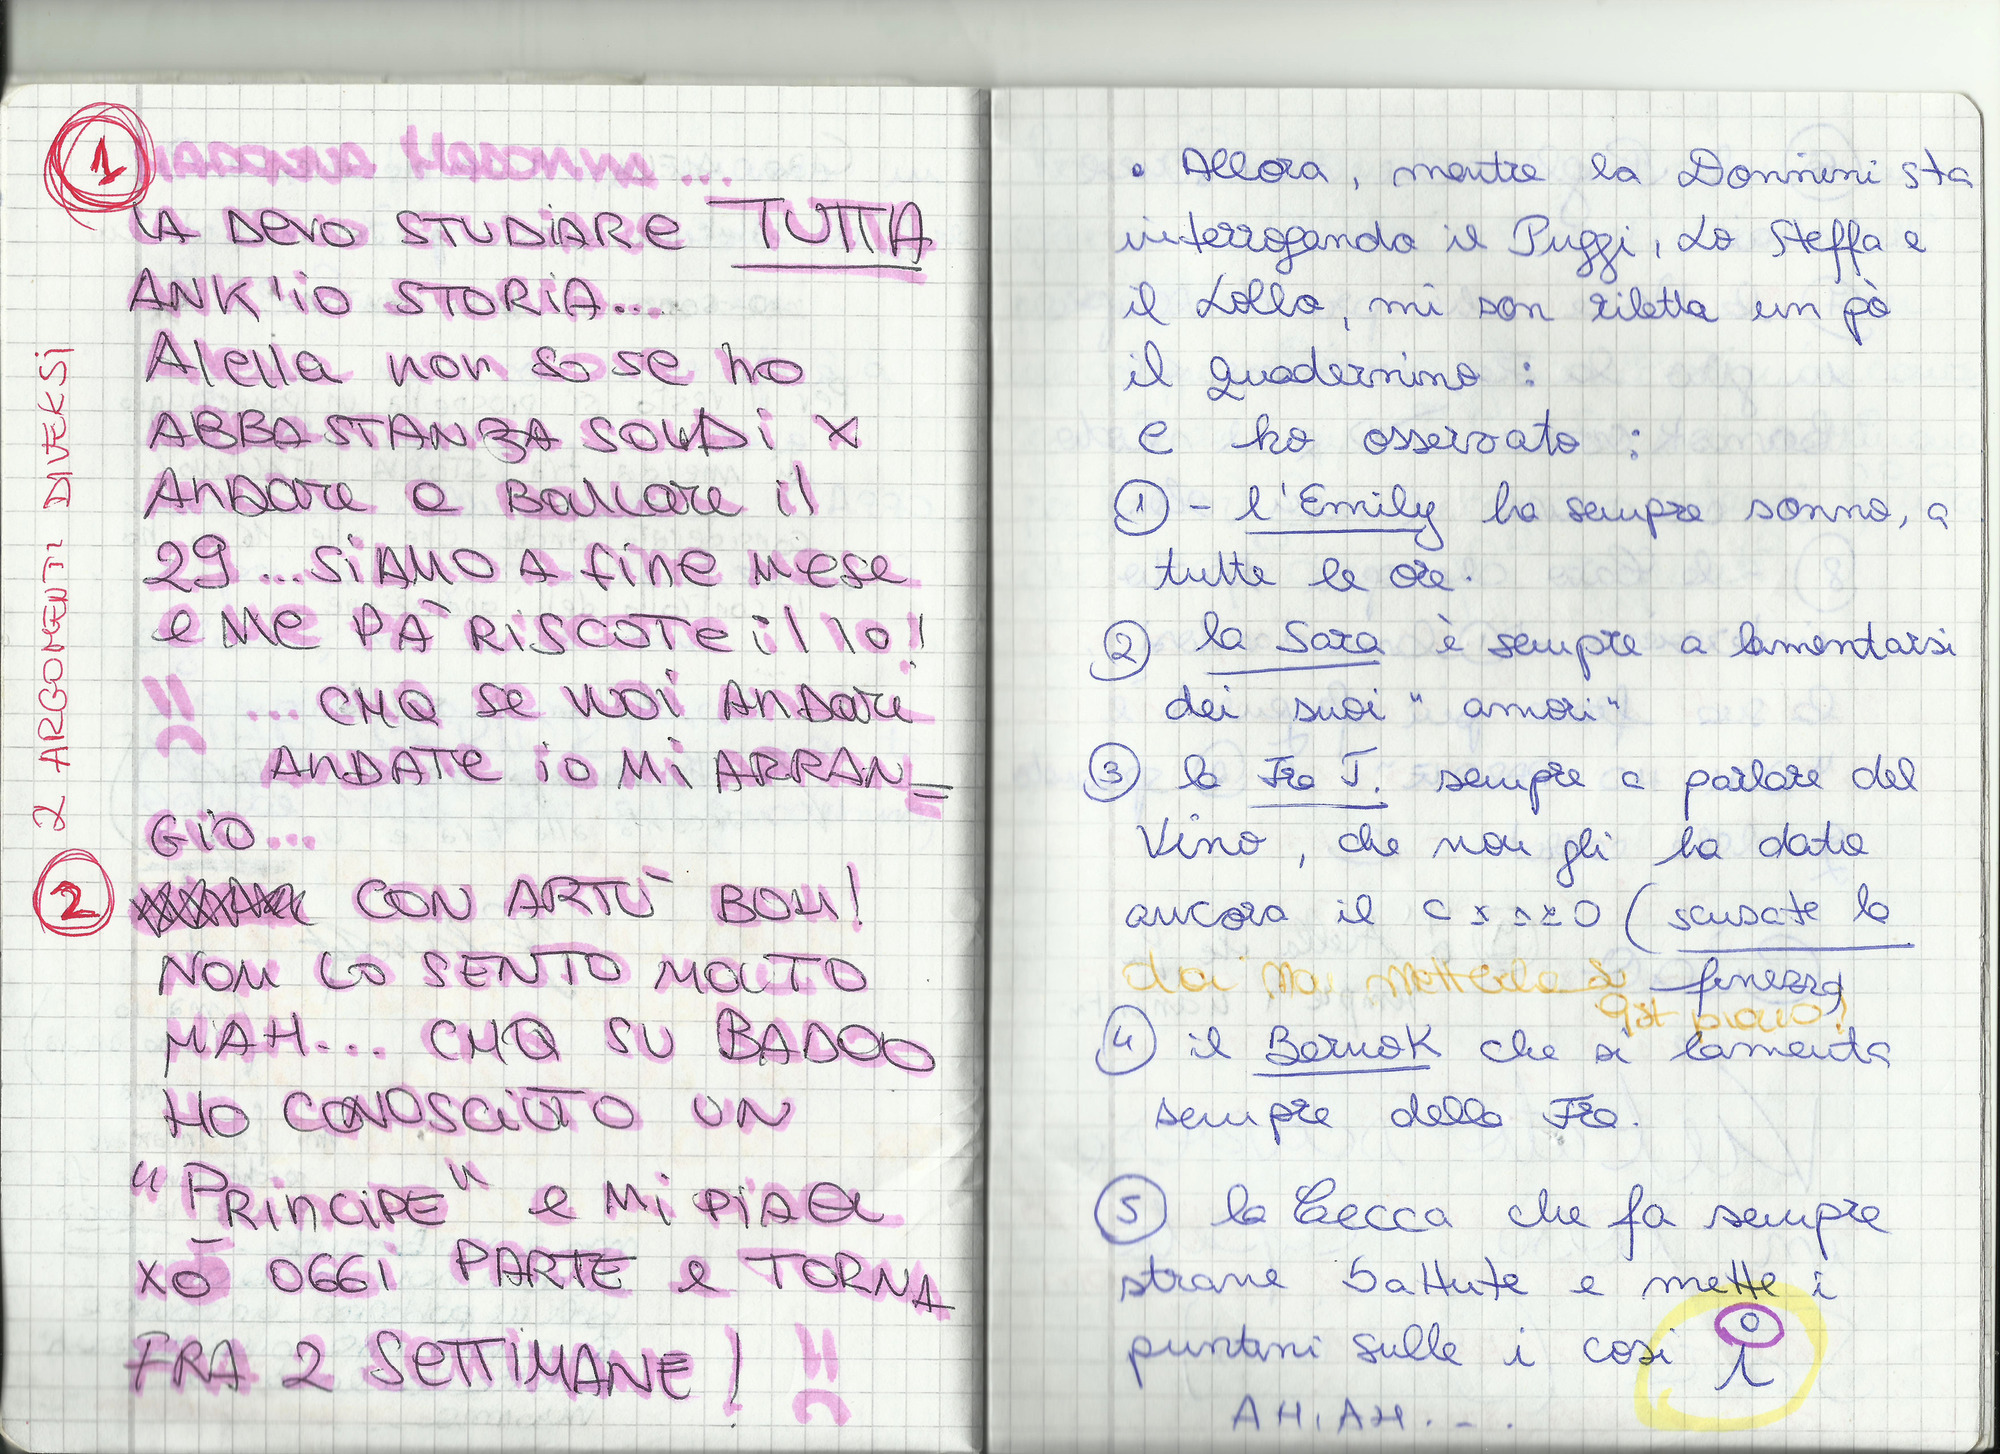 2 ARGOMENTI DIVERSI
1
MADONNA ...
LA DEVO STUDIARE TUTTA
ANK'IO STORIA...
Alella non so se ho
ABBASTANZA SOLDI X
ANDARE a BALLARE il
29 ...SIAMO A fine mese
e Me PÀ RISCOTE il 10!
... CMQ se VUOI ANDARE
ANDATE io Mi ARRAN=
GIO...
2
CON ARTÙ BOH!
NON LO SENTO MOLTO
MAH... CMQ SU BADOO
HO CONOSCIUTO UN
"PRINCIPE" e Mi PIACE
XÒ OGGI PARTE e TORNA
FRA 2 SETTIMANE!
• Allora, mentre la Donnini sta
interrogando il Puggi, Lo Steffa e
il Lollo, mi son riletta un pò
il quadernino:
E ho osservato:
1 - l'Emily ha sempre sonno, a
tutte le ore.
2 la Sara è sempre a lamentarsi
dei suoi "amori"
3 la Fra T. sempre a parlare del
Vino, che non gli ha dato
ancora il c x x x o (scusate la
finezza)
4 il BernoK che si lamenta
sempre della Fra.
5 la Cecca che fa sempre
strane battute e mette i
puntini sulle i così i
AH, AH...